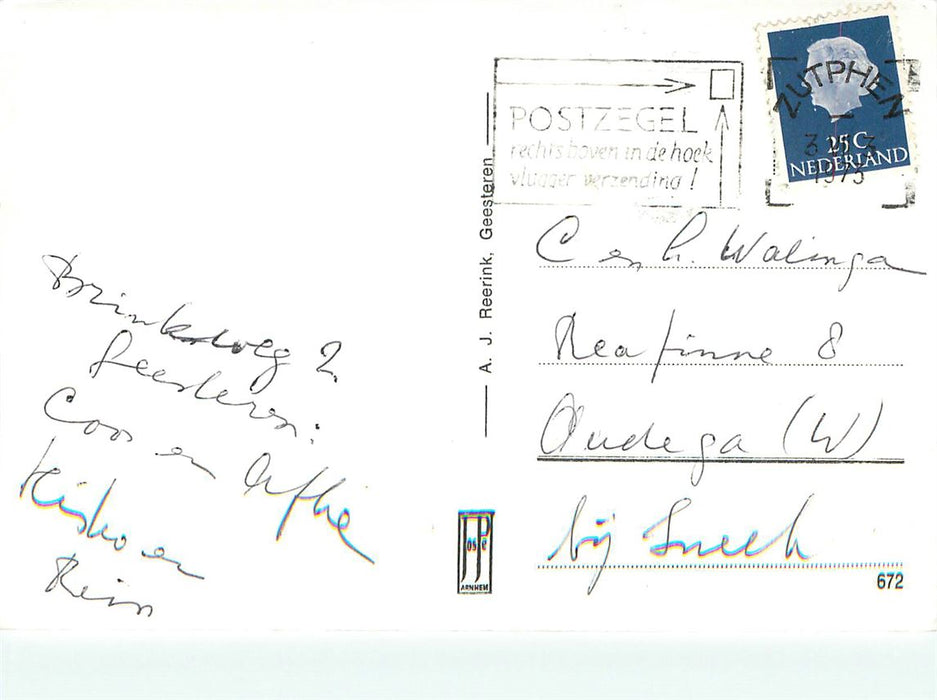 POSTZEGEL
rechts boven in de hoek
vlugger verzending!
ZUTPHEN
1973
25 C
NEDERLAND
A. J. Reerink, Geesteren
Brinkweg 2
Geesteren:
Coos en Aafke
en
Rein
C en h. Walinga
8
Oudega (W)
bij Sneek
JosPé
ARNHEM
672